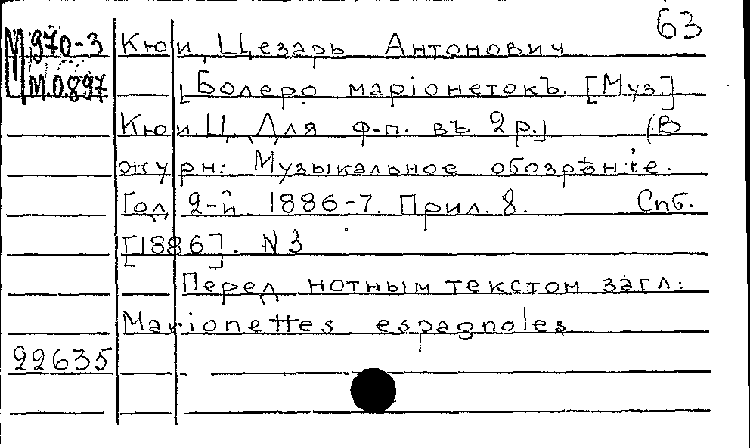 63
М 970-3 Кюи, Цезарь Антонович
М.О.897 [Болеро марiонетокъ. [Муз]
Кюи Ц. Для ф-п. въ 2 р.] (В
журн: Музыкальное обозрѣнiе.
Год 2-й 1886-7. Прил. 8. Спб.
[1886]. N 3
Перед нотным текстом загл:
Marionettes espagnoles
22635